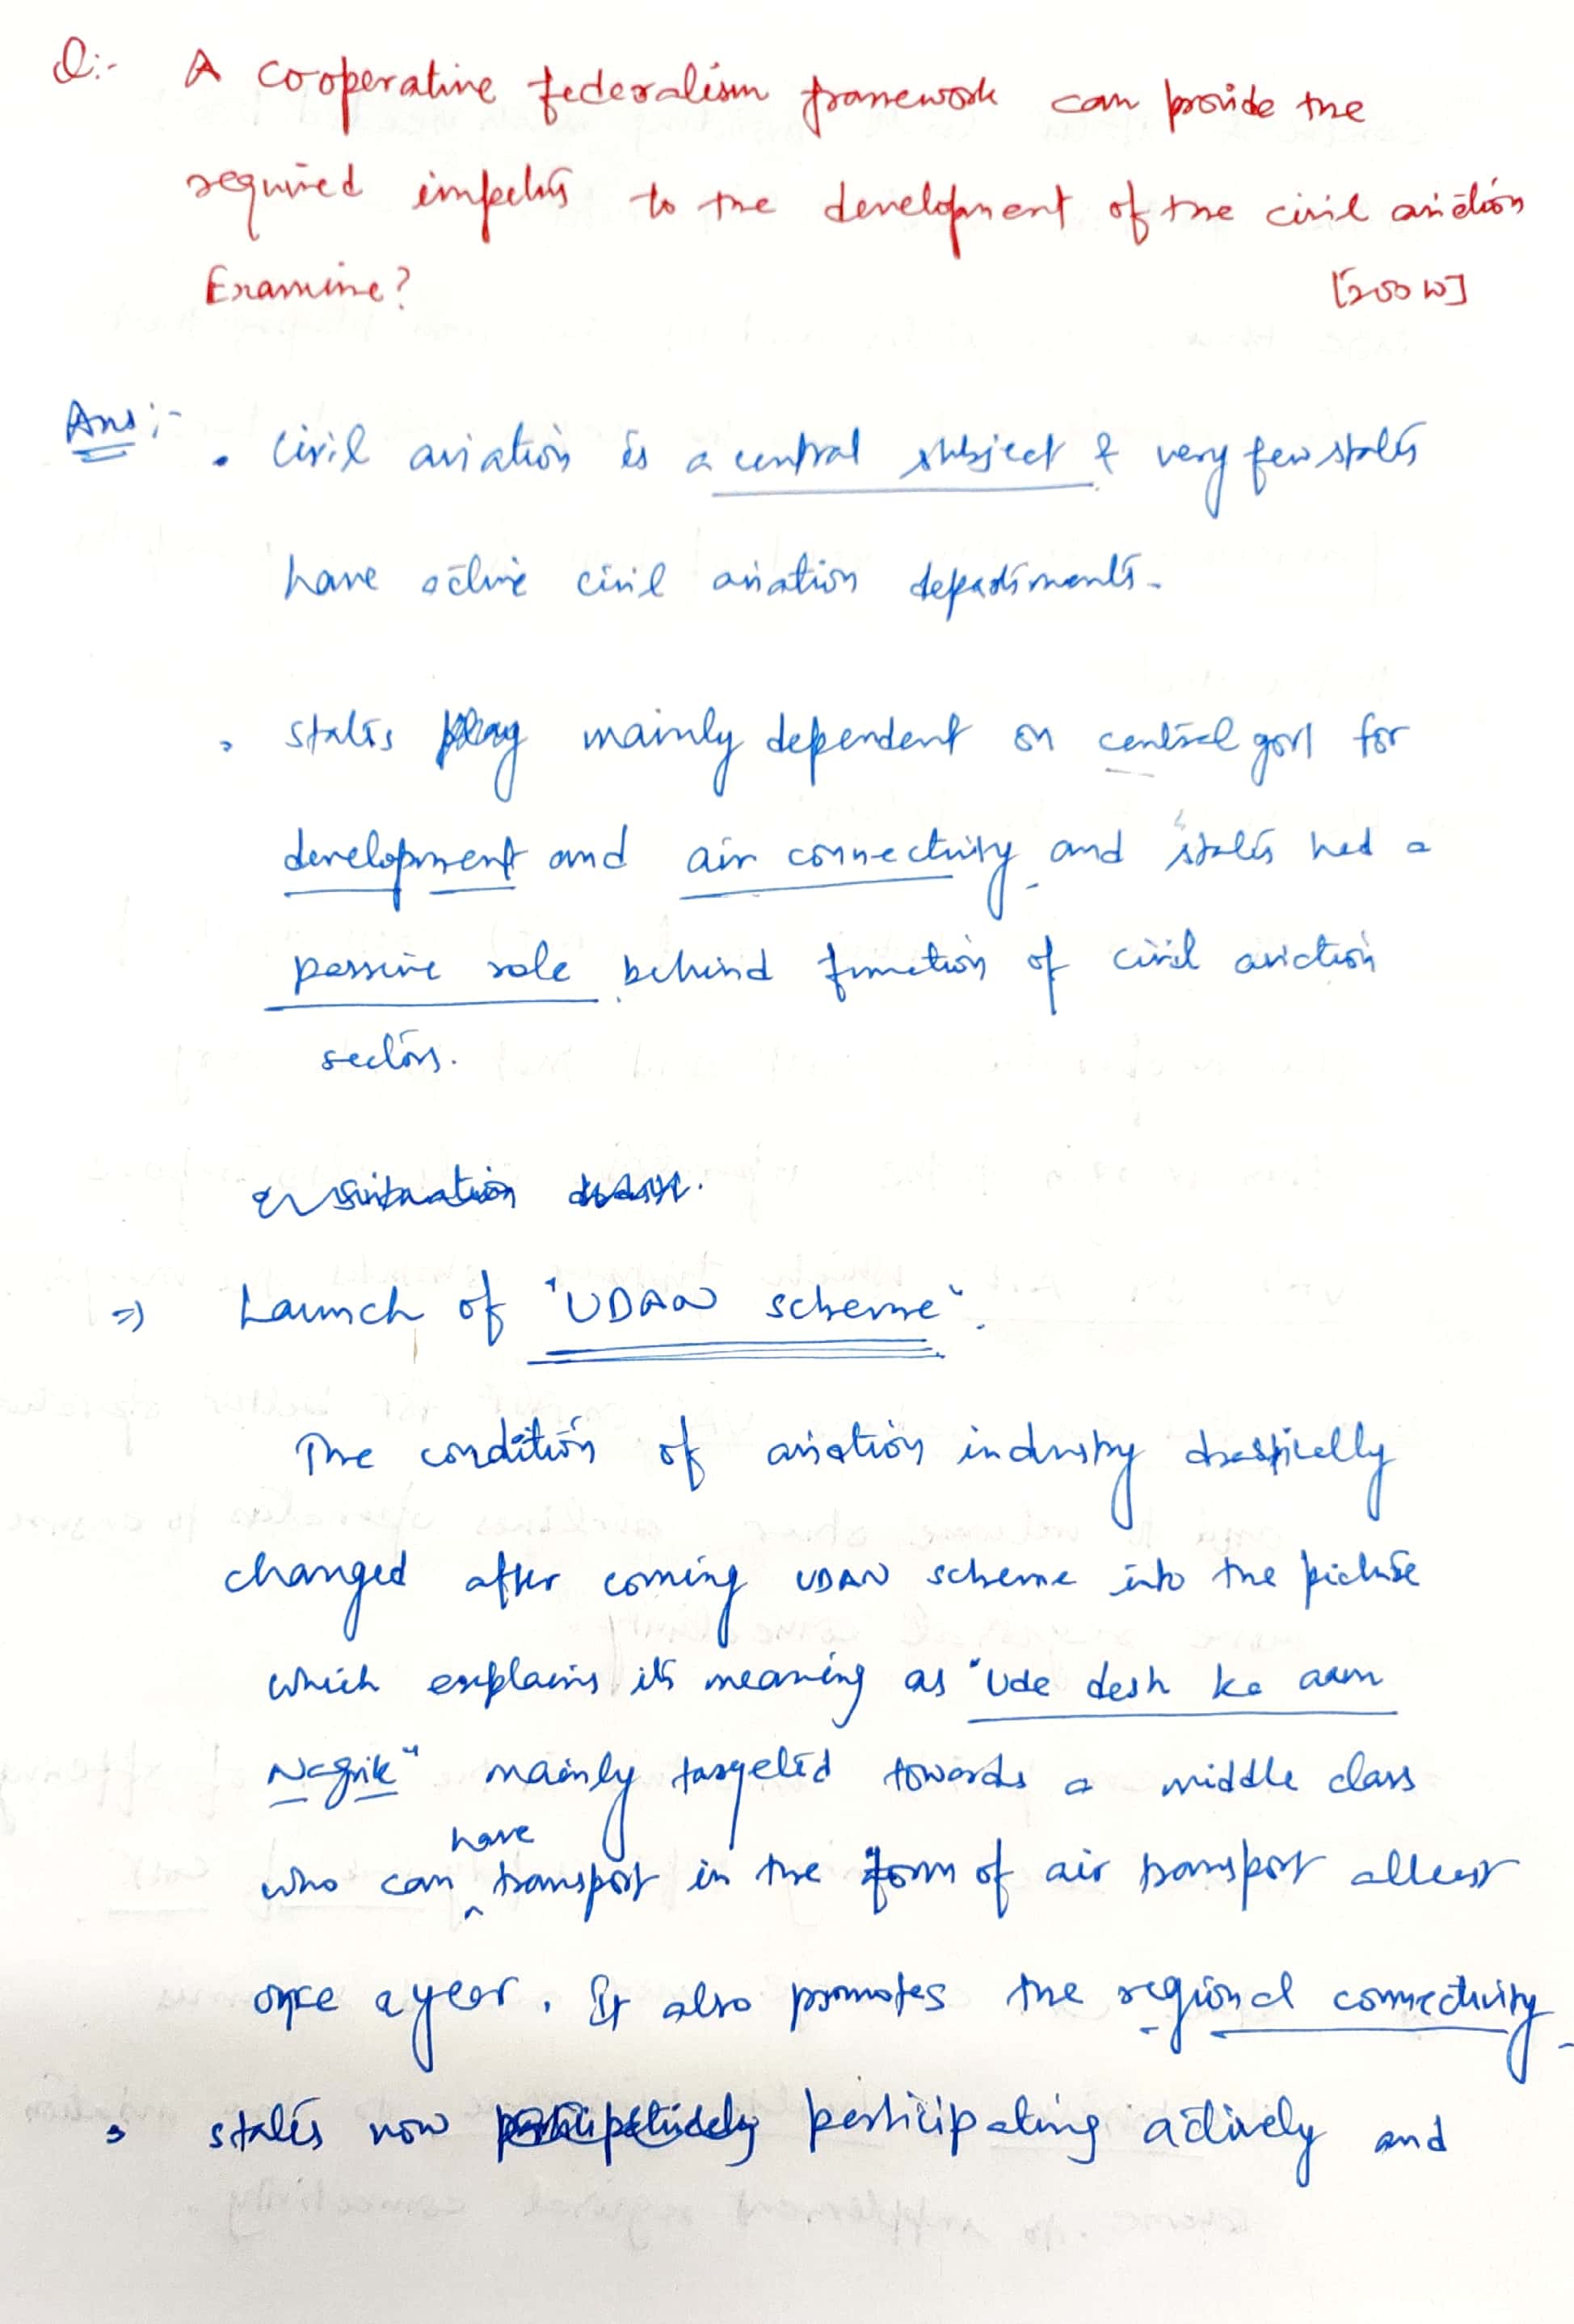 Q:- A cooperative federalism framework can provide the
required impetus to the development of the civil aviation
Examine? [200 W]
Ans:- • Civil aviation is a central subject & very few states
have active civil aviation departments.
• states mainly dependent on central govt for
development and air connectivity and states had a
passive role behind function of civil aviation
sectors.
=) Launch of "UDAN scheme".
The condition of aviation industry drastically
changed after coming UDAN scheme into the picture
which explains its meaning as "Ude desh ka aam
Nagrik" mainly targeted towards a middle class
who can have transport in the form of air transport atleast
once a year. It also promotes the regional connectivity
• states now participating actively and